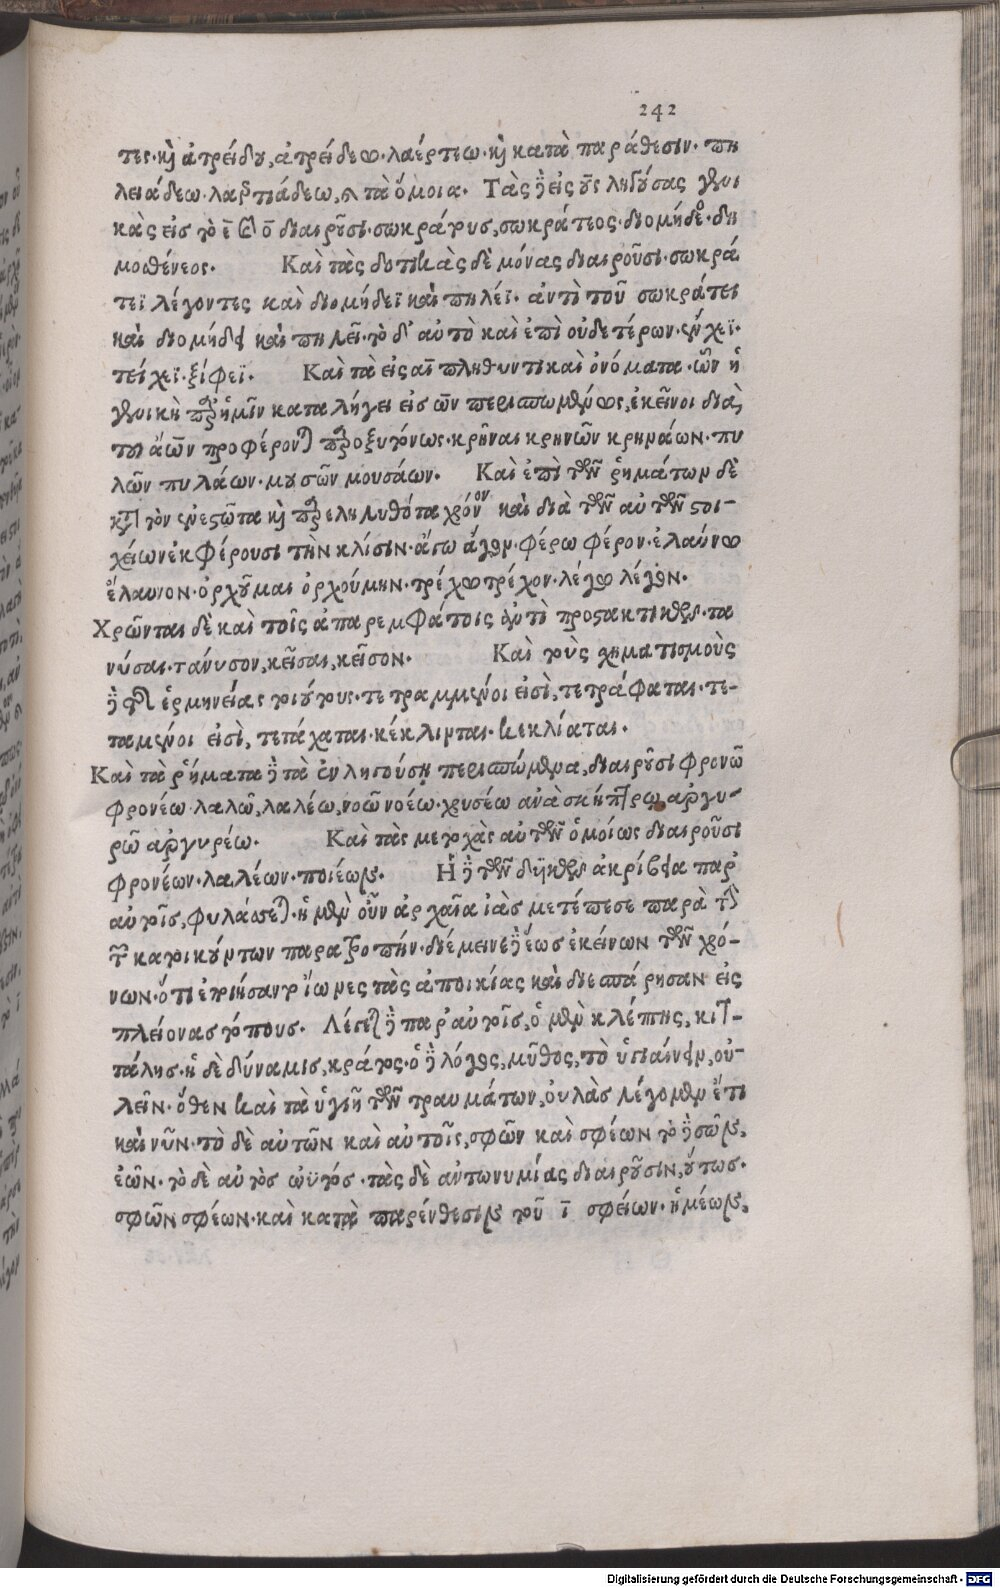 242
τες· καὶ ἀτρείδου, ἀτρείδεω· λαέρτεω· καὶ κατὰ παράθεσιν· πη
λειάδεω· λαερτιάδεω, καὶ τὰ ὅμοια. Τὰς δὲ εἰς ους ληγούσας γενι
κὰς εἰς τὸ ε̄ καὶ ο̄ διαιροῦσι· σωκράτους, σωκράτεος· διομήδεος· δη
μοσθένεος. Καὶ τὰς δοτικὰς δὲ μόνας διαιροῦσι· σωκρά
τεϊ λέγοντες καὶ διομήδεϊ καὶ πηλέϊ· ἀντὶ τοῦ σωκράτει
καὶ διομήδει καὶ πηλεῖ· τὸ δ' αὐτὸ καὶ ἐπὶ οὐδετέρων· ἔγχεϊ·
τείχεϊ· ξίφεϊ. Καὶ τὰ εἰς αι πληθυντικαὶ ὀνόματα· ὧν ἡ
γενικὴ παρ' ἡμῖν καταλήγει εἰς ων περισπωμένως, ἐκεῖνοι διὰ
τοῦ άων προφέρονται παροξυτόνως· κρῆναι κρηνῶν κρηνάων· πυ
λῶν πυλάων· μουσῶν μουσάων. Καὶ ἐπὶ τῶν ῥημάτων δὲ
κατὰ τὸν ἐνεστῶτα καὶ παρεληλυθότα χρόνον καὶ διὰ τῶν αὐτῶν στοι-
χείων ἐκφέρουσι τὴν κλίσιν· ἄγω ἄγον· φέρω φέρον· ἐλαύνω
ἔλαυνον· ὀρχοῦμαι ὀρχούμην· τρέχω τρέχον· λέγω λέγον.
Χρῶνται δὲ καὶ τοῖς ἀπαρεμφάτοις ἀντὶ προστακτικῶν· τα
νύσαι· τάνυσον, κεῖσαι, κεῖσον. Καὶ τοὺς χηματισμοὺς
δὲ τῆς ἑρμηνείας τοιούτους· τετραμμένοι εἰσὶ, τετράφαται· τε-
ταμένοι εἰσὶ, τετάχαται· κέκλινται· κεκλίαται.
Καὶ τὰ ῥήματα δὲ τὰ ἐνλητούση περισπώμενα, διαιροῦσι φρονῶ
φρονέω· λαλῶ, λαλέω, νοῶ νοέω· χρυσέω ἀνὰ σκήπτρω, ἀργυ-
ρῶ ἀργυρέω. Καὶ τὰς μετοχὰς αὐτῶν ὁμοίως διαιροῦσι
φρονέων· λαλέων· ποιέων. Ἡ δὲ τῶν δηϊκῶν ἀκρίβεια παρ'
αὐτοῖς, φυλάσσεται· ἡ μὲν οὖν ἀρχαῖα ἰὰς μετέπεσε παρὰ τὴν
τῶν κατοικούντων παρατροπήν· διέμεινε δὲ ἕως ἐκείνων τῶν χρό-
νων· ὅτι ἐποιήσαντο ἴωνες τὰς ἀποικίας καὶ διεσπάρησαν εἰς
πλείονας τόπους. Λέγεται δὲ παρ' αὐτοῖς, ὁ μὲν κλέπτης, κιτ-
τάλης· ἡ δὲ δύναμις, κράτος· ὁ δὲ λόγος, μῦθος, τὸ ὑγιαίνειν, οὐ-
λεῖν· ὅθεν καὶ τὰ ὑγιῆ τῶν τραυμάτων, οὐλὰς λέγομεν ἔτι
καὶ νῦν· τὸ δὲ αὐτῶν καὶ αὐτοῖς, σφῶν καὶ σφέων τὸ δὲ σῶν,
ἑῶν· τὸ δὲ αὐτὸς ὡϋτός· τὰς δὲ ἀντωνυμίας διαιροῦσιν, οὕτως·
σφῶν σφέων· καὶ κατὰ παρένθεσιν τοῦ ῑ σφείων· ἡμέων,
Digitalisierung gefördert durch die Deutsche Forschungsgemeinschaft - DFG